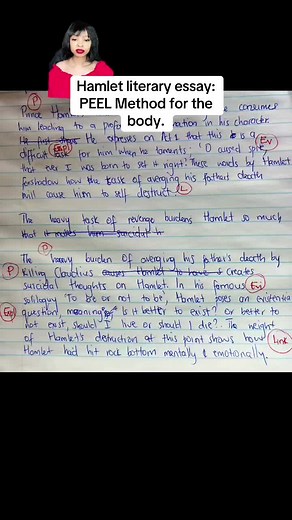 Hamlet literary essay:
PEEL Method for the
body.
P
Prince Haml consumes
him leading to a in his character
He first He expresses on Act 1 that this is a Ev
difficult task for him when he laments, "O cursed spite
Exp
that ever I was born to set it right". These words by Hamlet
foreshadow how the task of avenging his father's death
will cause him to self destruct. L
The heavy task of revenge burdens Hamlet so much
that it makes him suicidal
P
The heavy burden of avenging his father's death by
P
killing Claudius causes Hamlet to have creates
suicidal thoughts on Hamlet. In his famous Ev
soliloquy "To be or not to be", Hamlet poses an existential
Exp question, meaning is it better to exist? Or better to
not exist, should I live or should I die?. The weight
of Hamlet's destruction at this point shows how Link
Hamlet had hit rock bottom mentally & emotionally.